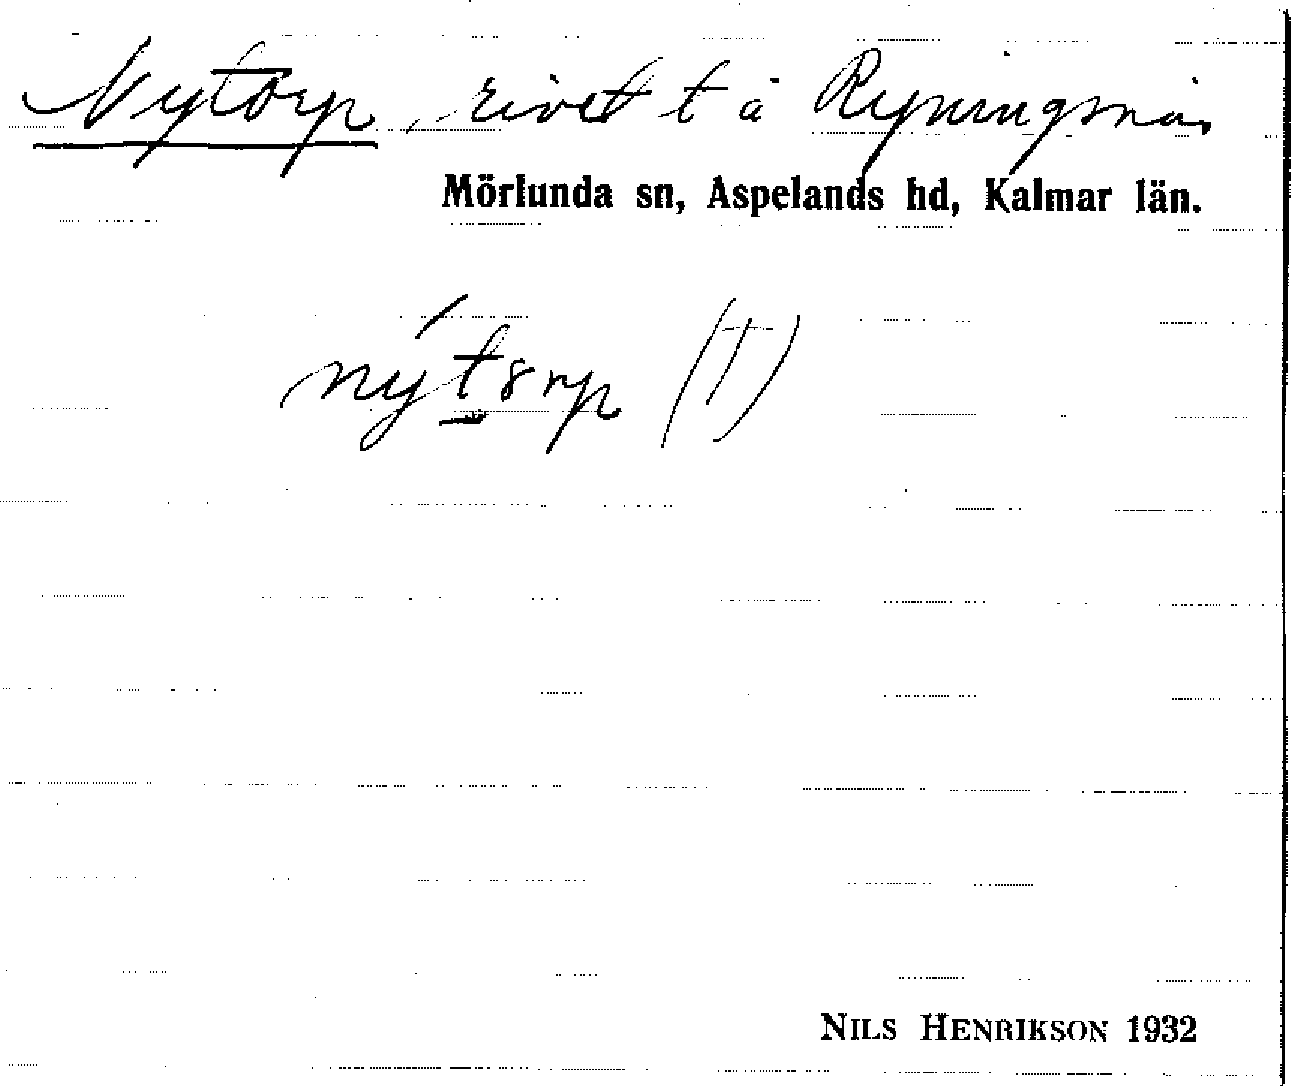 Nytorp, rivet t å Ryningsnäs
Mörlunda sn, Aspelands hd, Kalmar län.
ny´torp (T)
NILS HENRIKSON 1932